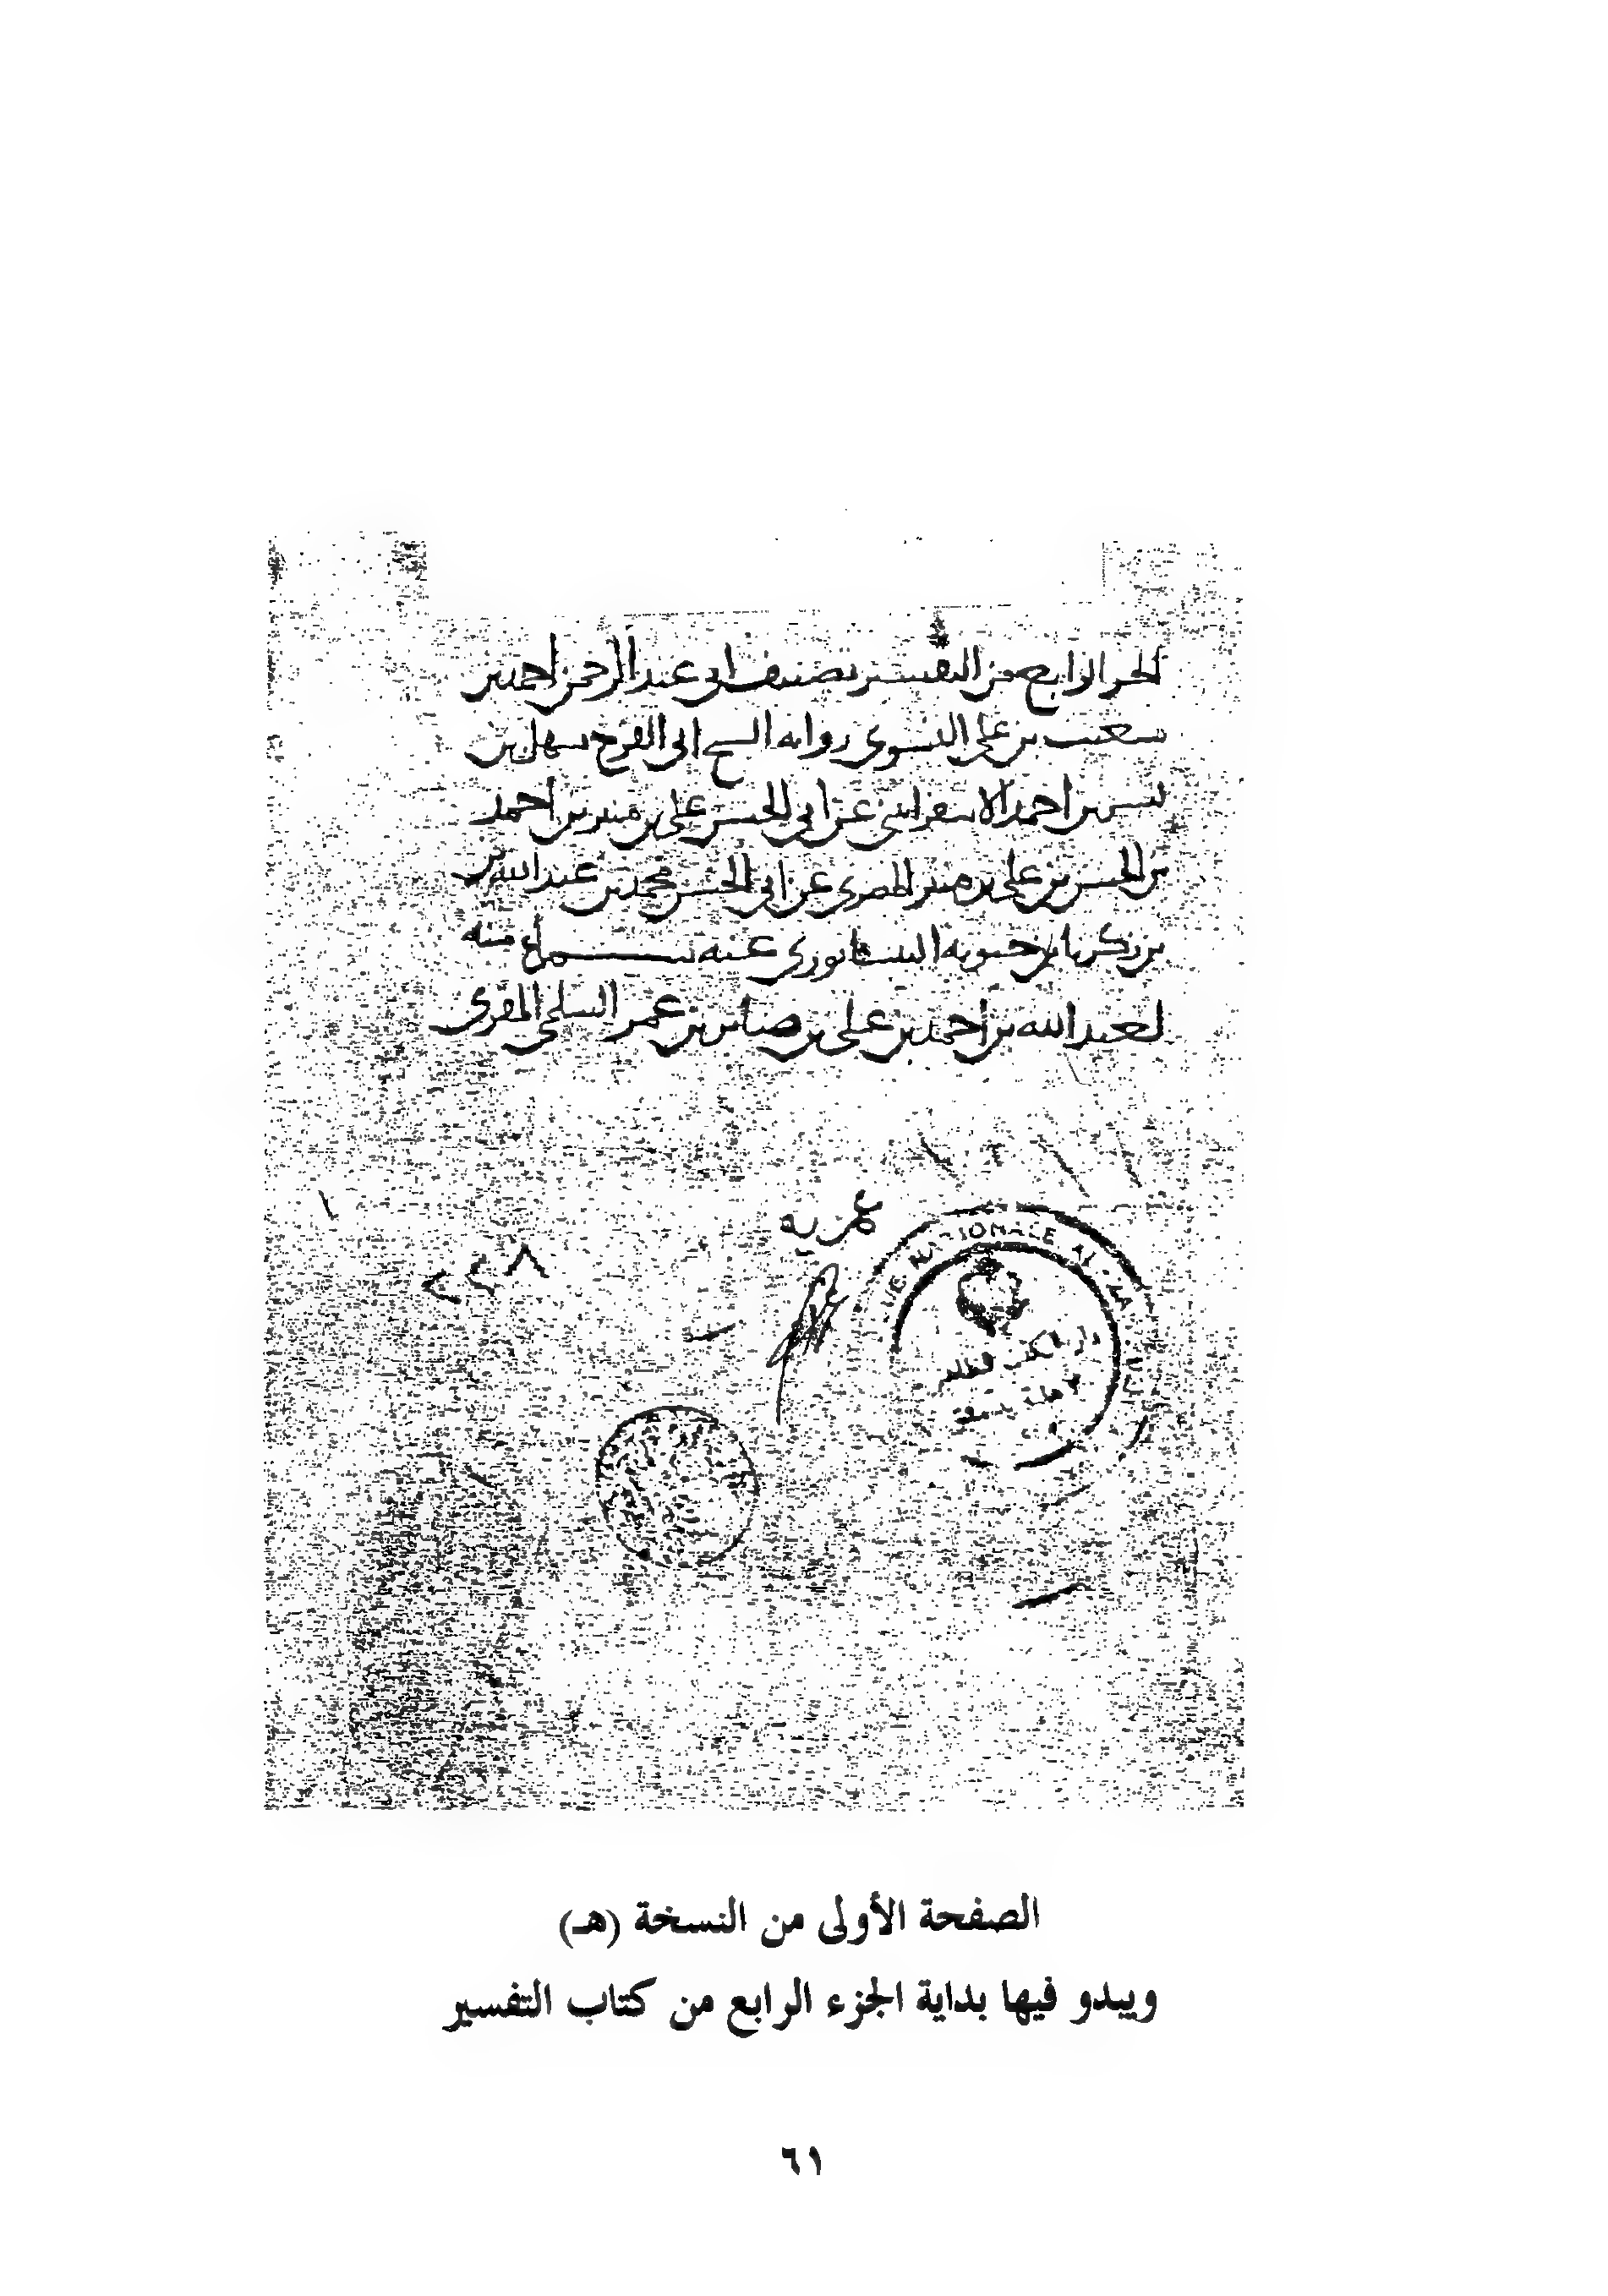 الجزء الرابع من التفسير تصنيف ابي عبد الرحمن احمد بن
شعيب بن علي النسوي رواية الشيخ ابي الفرج سهل بن
بشر بن احمد الاسفرايني عن ابي الحسن علي بن منير بن احمد
بن الحسن بن علي بن منير المصري عن ابي الحسن محمد بن عبد الله بن
بن زكريا بن حيويه النيسابوري عنه سماع منه
لعبد الله بن احمد بن علي بن صابر بن عمر السلمي المقرئ
عمرية
NATIONALE AL-ZA
دار الكتب الظاهرية
الاهلية بدمشق
الصفحة الأولى من النسخة (هـ)
ويبدو فيها بداية الجزء الرابع من كتاب التفسير
٦١